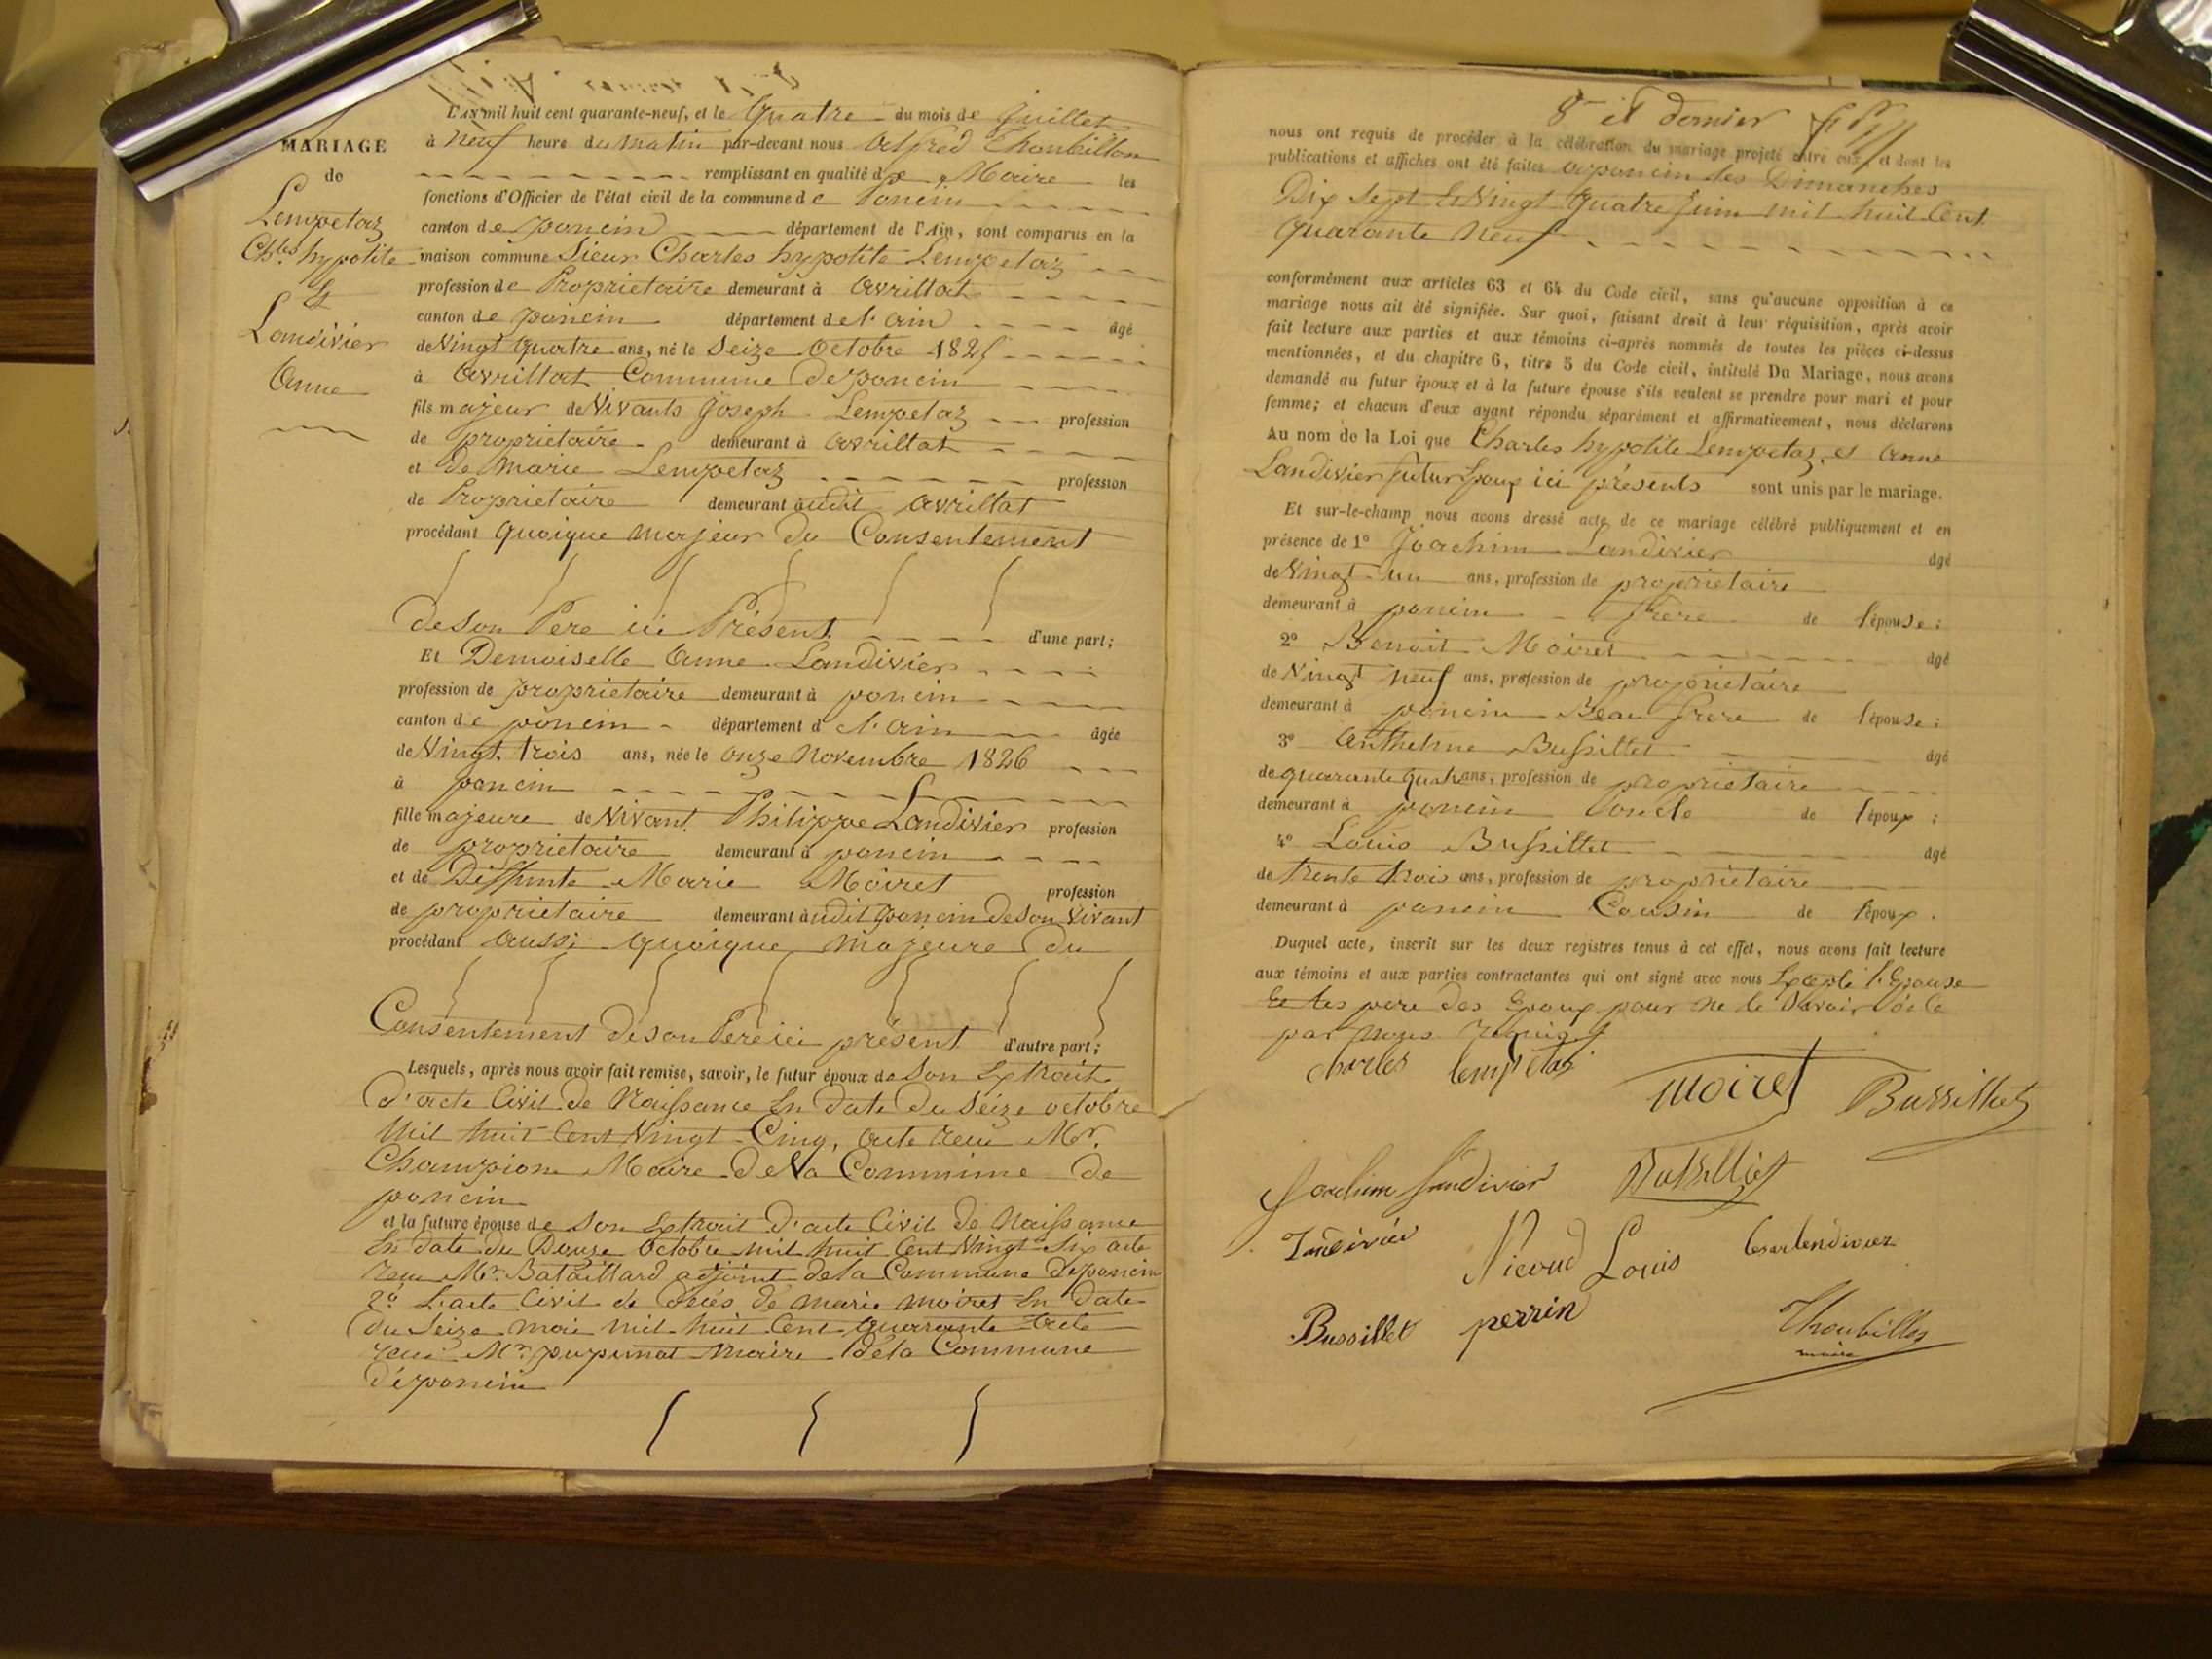 MARIAGE
de
Lempetaz
Ch.les hypolite
Et
Landivier
Anne
L'AN mil huit cent quarante-neuf, et le Quatre du mois de Juillet
à Neuf heure du Matin par-devant nous Alfred Thoubillon
remplissant en qualité de Maire les
fonctions d'Officier de l'état civil de la commune de Poncin
canton de poncin département de l'Ain, sont comparus en la
maison commune Sieur Charles hypolite Lempetaz
profession de Proprietaire demeurant à Avrillat
canton de poncin département de l'ain âgé
de Vingt quatre ans, né le Seize Octobre 1825
à Avrillat Commune De poncin
fils majeur de Vivants Joseph Lempetaz profession
de proprietaire demeurant à Avrillat
et De Marie Lempetaz profession
de Proprietaire demeurant audit Avrillat
procédant quoique Majeur du Consentement
de Son Pere ici Présent d'une part;
Et Demoiselle Anne Landivier
profession de proprietaire demeurant à poncin
canton de poncin département d el'ain âgée
de Vingt trois ans, née le onze Novembre 1826
à poncin
fille majeure de Vivant Philippe Landivier profession
de proprietaire demeurant à poncin
et de Deffunte Marie Moiret profession
de proprietaire demeurant audit poncin de son Vivant
procédant aussi quoique majeure du
Consentement de son Pere ici présent d'autre part;
Lesquels, après nous avoir fait remise, savoir, le futur époux de Son Extrait
d'acte Civil de Naissance En date du Seize octobre
Mil huit Cent Vingt Cinq, acte recu Mr.
Champion Maire De la Commune de
poncin
et la future épouse de Son Extrait d'acte Civil de Naissance
En date du Douze Octobre mil huit Cent Vingt Six acte
recu Mr. Bataillard adjoint de la Commune de poncin
2.o L'acte Civil de deces de marie moiret En date
du Seize mai mil huit Cent quarante acte
recu Mr. pupunat Maire de la Commune
de poncin
8e et dernier
nous ont requis de procéder à la célébration du mariage projeté entre eux, et dont les
publications et affiches ont été faites a poncin les Dimanches
Dix Sept et Vingt quatre Juin mil huit Cent
quarante Neuf
conformément aux articles 63 et 64 du Code civil, sans qu'aucune opposition à ce
mariage nous ait été signifiée. Sur quoi, faisant droit à leur réquisition, après avoir
fait lecture aux parties et aux témoins ci-après nommés de toutes les pièces ci-dessus
mentionnées, et du chapitre 6, titre 5 du Code civil, intitulé Du Mariage, nous avons
demandé au futur époux et à la future épouse s'ils veulent se prendre pour mari et pour
femme; et chacun d'eux ayant répondu séparément et affirmativement, nous déclarons
Au nom de la Loi que Charles hypolite Lempetaz, et Anne
Landivier futur Epoux ici présents sont unis par le mariage.
Et sur-le-champ nous avons dressé acte de ce mariage célébré publiquement et en
présence de 1º Joachim Landivier âgé
de Vingt un ans, profession de proprietaire
demeurant à poncin frere de l'épouse;
2º Benoit Moiret âgé
de Vingt neuf ans, profession de proprietaire
demeurant à poncin Beau frere de l'épouse;
3º Anthelme Bussillet âgé
de quarante quatre ans, profession de proprietaire
demeurant à poncin oncle de l'époux;
4º Louis Bussillet âgé
de trente trois ans, profession de proprietaire
demeurant à poncin Cousin de l'époux.
Duquel acte, inscrit sur les deux registres tenus à cet effet, nous avons fait lecture
aux témoins et aux parties contractantes qui ont signé avec nous Excepté l'Epouse
Et les pere des Epoux pour ne le Savoir de ce
par nous requis
charles lempetaz
moiret
Bussillet
Joachim landivier
Bussilliet
Landivier
Nicoud Louis
Cesar landivier
Bussillet
perrin
Thoubillon
maire